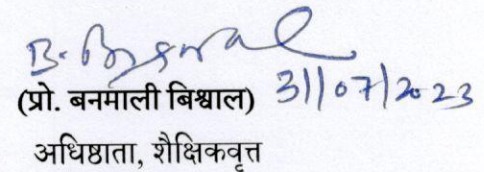 B. Biswal
(प्रो. बनमाली बिश्वाल) 31/07/2023
अधिष्ठाता, शैक्षिकवृत्त